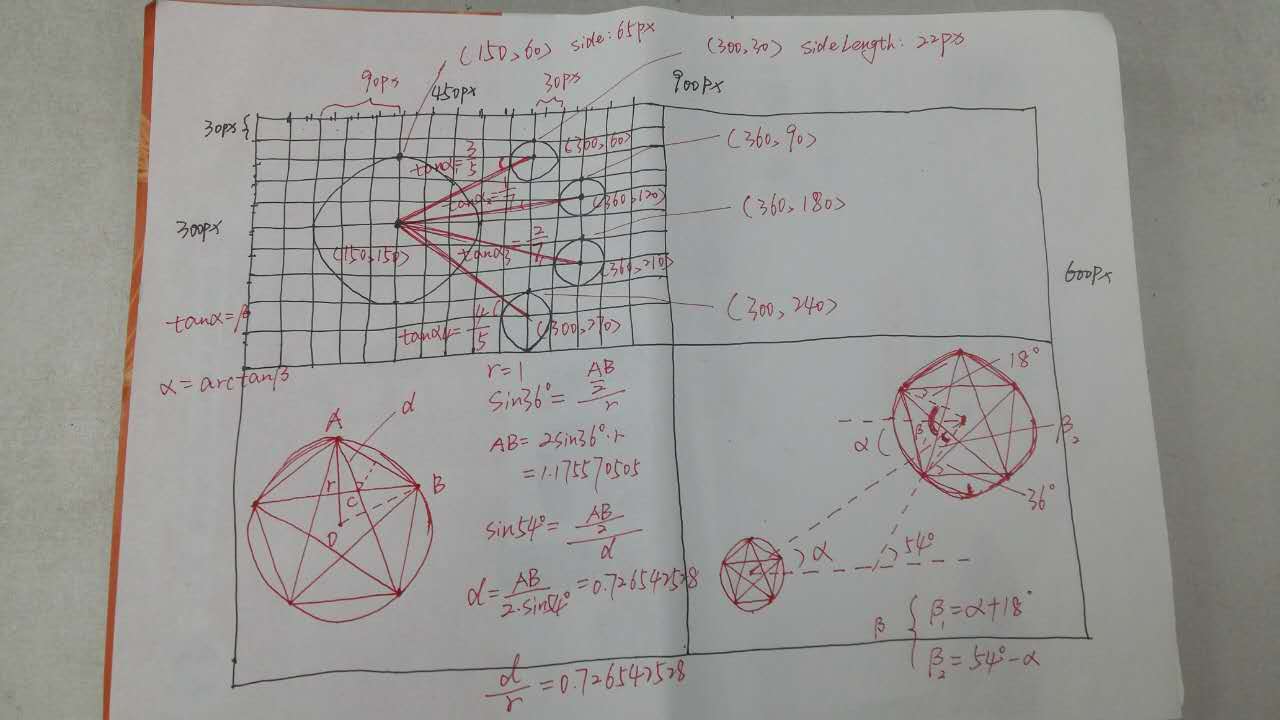 (150、60) side: 65px
(300、30) sideLength: 22px
90px
450px
30px
900px
30px{
(360、60)
tanα₁=3/5
(360、90)
(360、120)
300px
(360、180)
(150、150)
tanα₃=2/7
(360、210)
600px
(300、240)
tanα=β
tanα₄=4/5
(300、270)
α=arctanβ
r=1
sin36°=
AB/2
r
AB=2sin36°·r
=1.175570505
sin54°=
AB/2
d
d=AB/2·sin54°=0.726542528
d/r=0.726542528
A
d
r
C
B
D
18°
β
α
β₂
36°
α
54°
β
{β₁=α+18°
β₂=54°-α